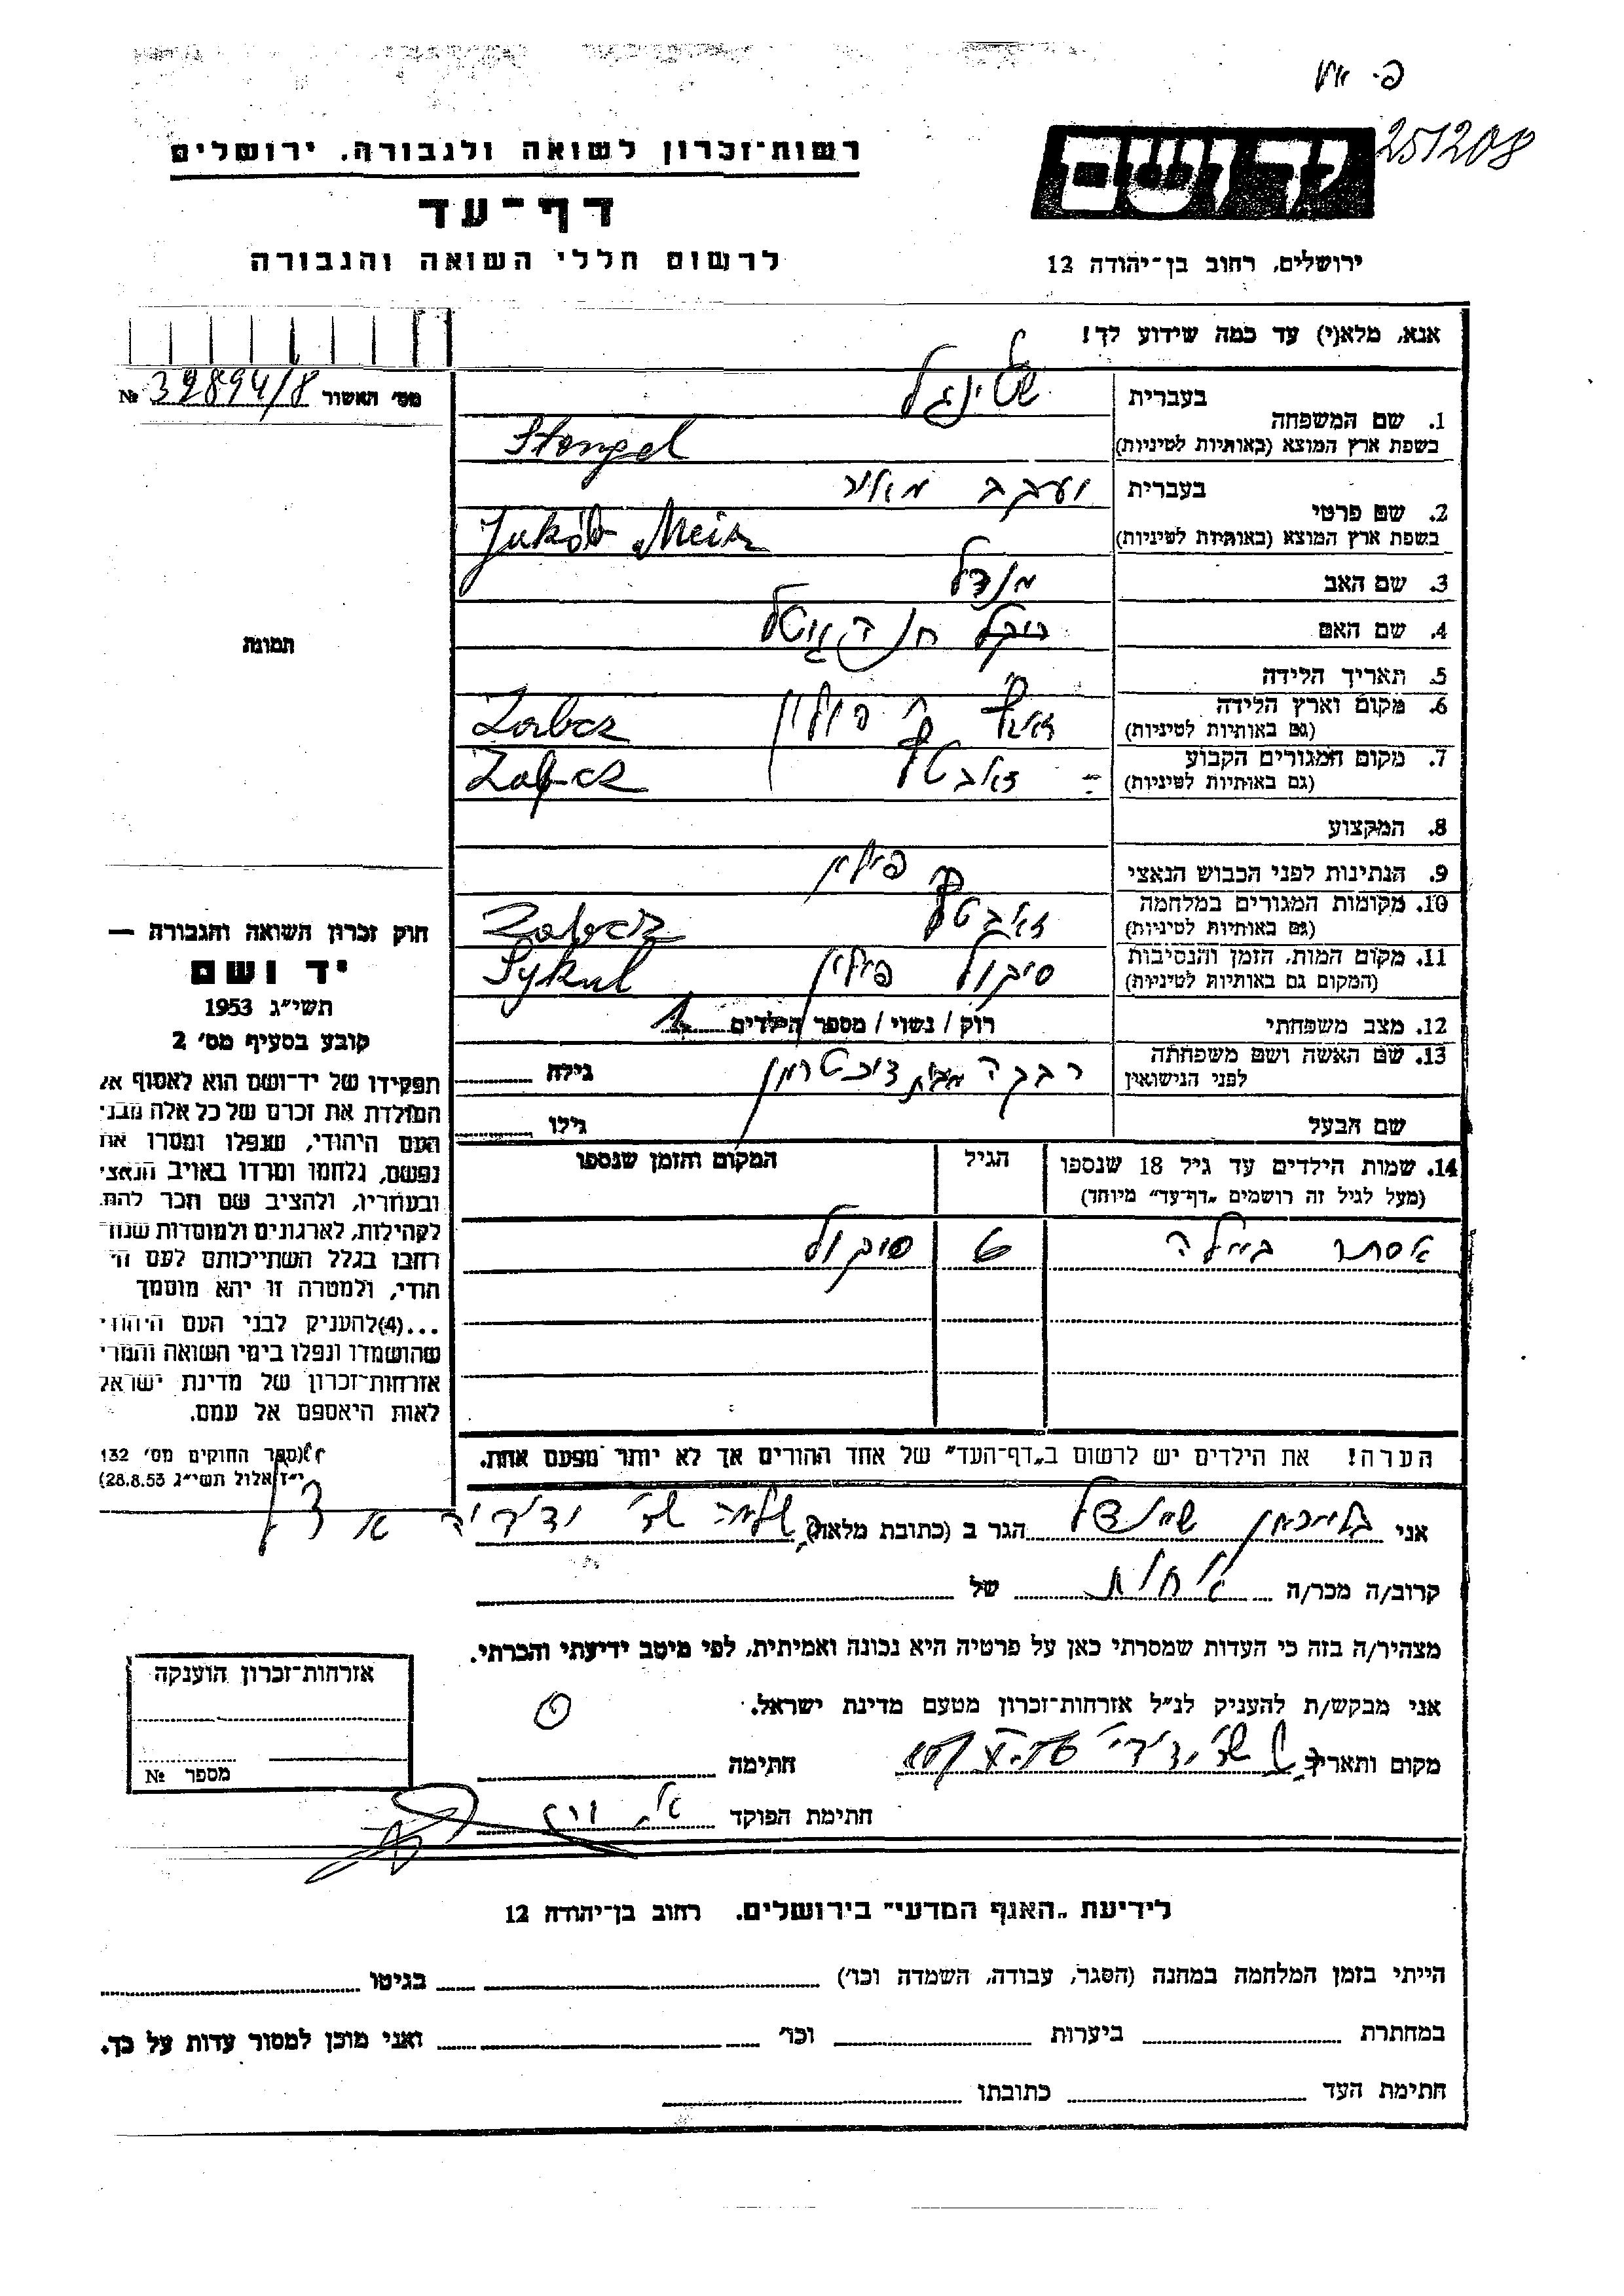 רשות־זכרון לשואה ולגבורה. ירושלים
דף־עד
לרשום חללי השואה והגבורה
251208
יד ושם
ירושלים, רחוב בן־יהודה 12
אנא, מלא(י) עד כמה שידוע לך!
מס׳ האשור № 32894/8
תמונה
בעברית שטינגל
1. שם המשפחה
בשפת ארץ המוצא (באותיות לטיניות) Stengel
בעברית יעקב מאיר
2. שם פרטי
בשפת ארץ המוצא (באותיות לטיניות) Jakób Meir
3. שם האב מנדל
4. שם האם
5. תאריך הלידה
6. מקום וארץ הלידה פולין
(גם באותיות לטיניות)
7. מקום המגורים הקבוע
(גם באותיות לטיניות)
8. המקצוע
9. הנתינות לפני הכבוש הנאצי פולין
10. מקומות המגורים במלחמה
(גם באותיות לטיניות)
11. מקום המות, הזמן והנסיבות פולין
(המקום גם באותיות לטיניות) Sykul
12. מצב משפחתי רווק / נשוי / מספר הילדים 1
13. שם האשה ושם משפחתה רבקה מבית גילה
לפני הנישואין
שם הבעל גילו
14. שמות הילדים עד גיל 18 שנספו הגיל המקום והזמן שנספו
(מעל לגיל זה רושמים „דף־עד” מיוחד)
אסתר ביילה 6
הערה! את הילדים יש לרשום ב„דף־העד” של אחד ההורים אך לא יותר מפעם אחת.
חוק זכרון השואה והגבורה —
יד ושם
תשי״ג 1953
קובע בסעיף מס׳ 2
תפקידו של יד־ושם הוא לאסוף אל
המולדת את זכרם של כל אלה מבני
העם היהודי, שנפלו ומסרו את
נפשם, נלחמו ומרדו באויב הנאצי
ובעוזריו, ולהציב שם וזכר להם,
לקהילות, לארגונים ולמוסדות שנח־
רבו בגלל השתייכותם לעם הי־
הודי, ולמטרה זו יהא מוסמך
...(4) להעניק לבני העם היהודי
שהושמדו ונפלו בימי השואה והמרי
אזרחות־זכרון של מדינת ישראל
לאות היאספם אל עמם.
(ספר החוקים מס׳ 132
י״ז אלול תשי״ג 28.8.53)
אני הגר ב (כתובת מלאה)
קרוב/ה מכר/ה של
מצהיר/ה בזה כי העדות שמסרתי כאן על פרטיה היא נכונה ואמיתית, לפי מיטב ידיעתי והכרתי.
אני מבקש/ת להעניק לנ״ל אזרחות־זכרון מטעם מדינת ישראל.
מקום ותאריך חתימה
חתימת הפוקד
אזרחות־זכרון הוענקה
מספר №
לידיעת „האגף המדעי” בירושלים. רחוב בן־יהודה 12
הייתי בזמן המלחמה במחנה (הסגר, עבודה, השמדה וכו׳) בגיטו
במחתרת ביערות וכו׳ ואני מוכן למסור עדות על כך.
חתימת העד כתובתו